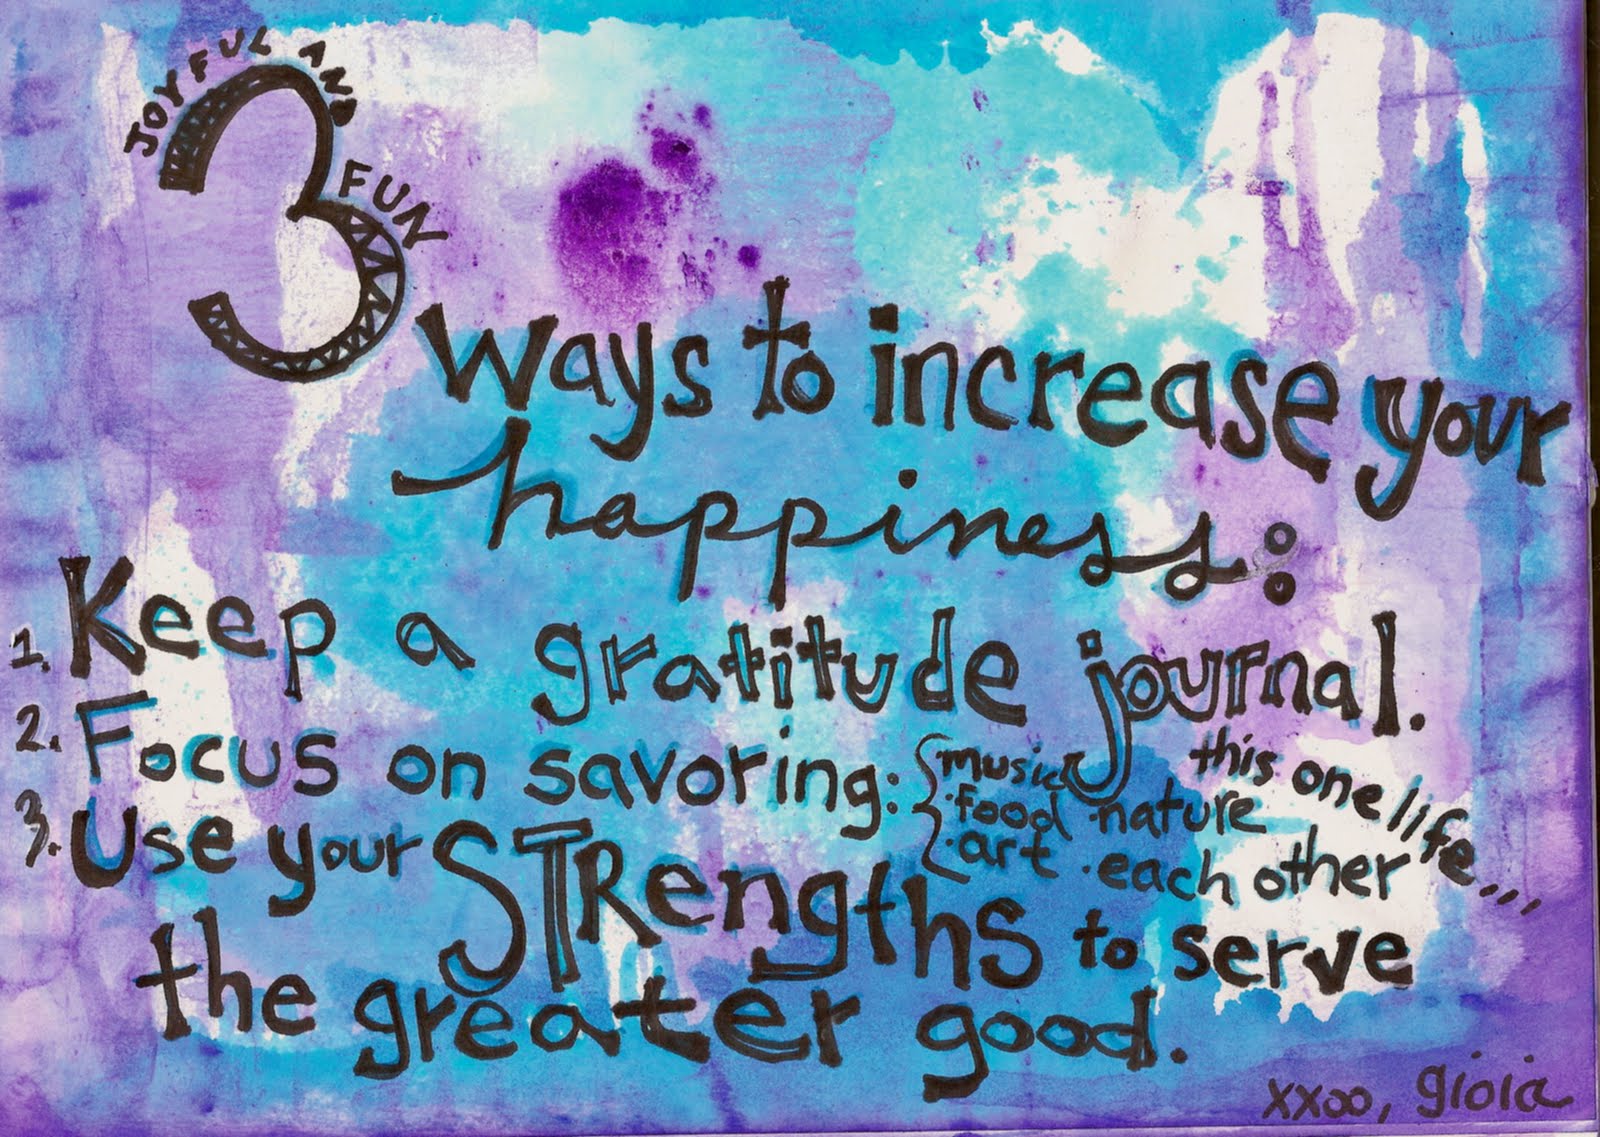 JOYFUL AND FUN
3 ways to increase your
happiness:
1. Keep a gratitude journal.
2. Focus on savoring: { music this one life...
· food · nature
· art · each other
3. Use your STRengths to serve
the greater good.
xxoo, gioia